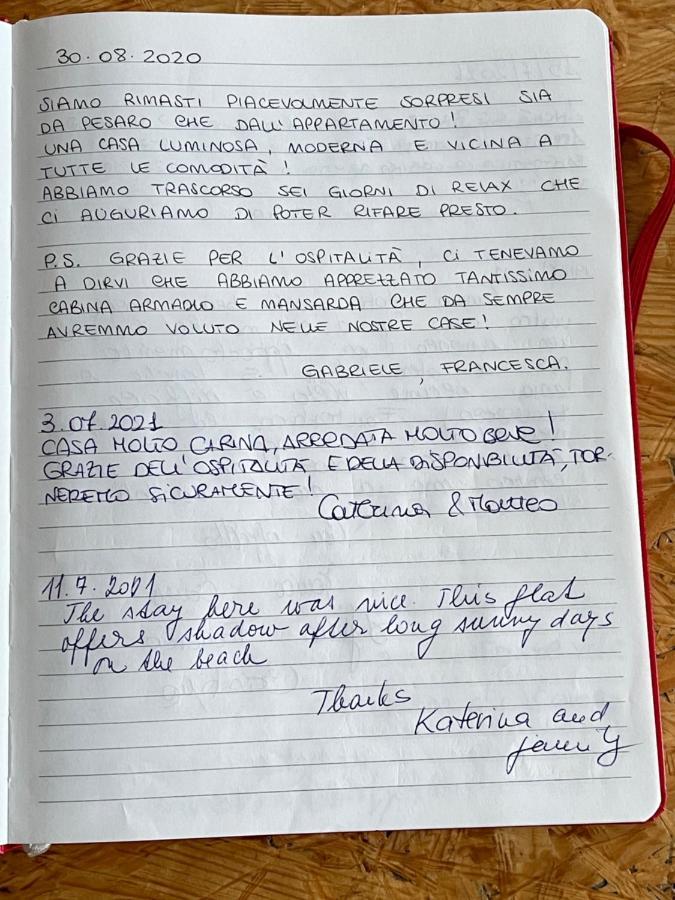 30.08.2020
SIAMO RIMASTI PIACEVOLMENTE SORPRESI SIA
DA PESARO CHE DALL'APPARTAMENTO!
UNA CASA LUMINOSA, MODERNA E VICINA A
TUTTE LE COMODITÀ!
ABBIAMO TRASCORSO SEI GIORNI DI RELAX CHE
CI AUGURIAMO DI POTER RIFARE PRESTO.
P.S. GRAZIE PER L'OSPITALITÀ, CI TENEVAMO
A DIRVI CHE ABBIAMO APPREZZATO TANTISSIMO
CABINA ARMADIO E MANSARDA CHE DA SEMPRE
AVREMMO VOLUTO NELLE NOSTRE CASE!
GABRIELE, FRANCESCA.
3.07.2021
CASA MOLTO CARINA, ARREDATA MOLTO BENE!
GRAZIE DELL'OSPITALITÀ E DELLA DISPONIBILITÀ, TOR-
NEREMO SICURAMENTE!
Caterina & Matteo
11.7.2021
The stay here was nice. This flat
offers shadow after long sunny days
on the beach
Thanks
Katerina and